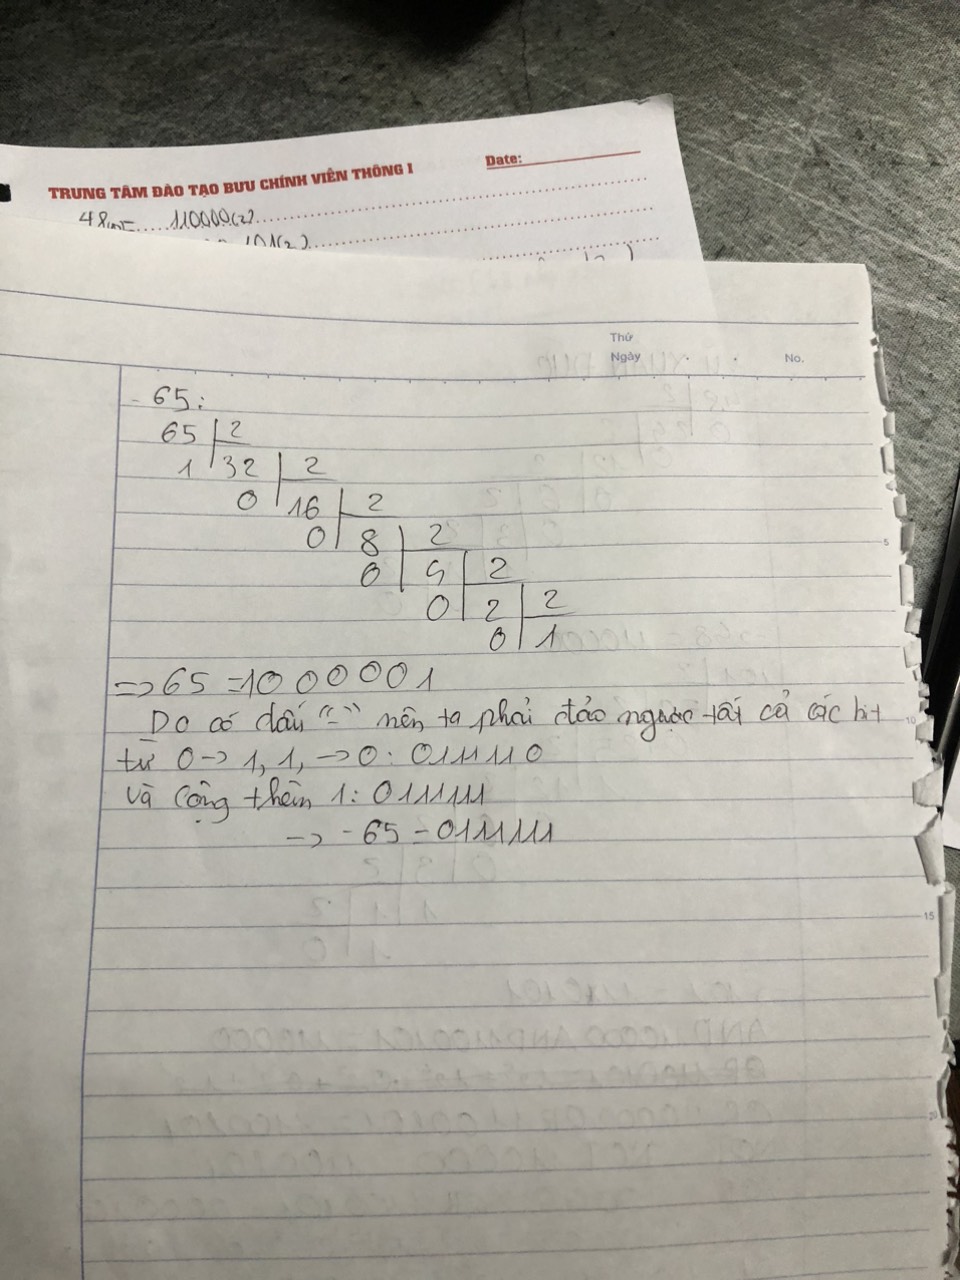 TRUNG TÂM ĐÀO TẠO BƯU CHÍNH VIỄN THÔNG I
Date:
110000(2)
101(2)
Thứ
Ngày
No.
- 65:
65 2
1 32 2
0 16 2
0 8 2
0 4 2
0 2 2
0 1
=> 65 = 1000001
Do có dấu "-" nên ta phải đảo ngược tất cả các bit
từ 0 -> 1, 1, -> 0: 0111110
và cộng thêm 1: 0111111
-> -65 = 0111111
5
10
15
20